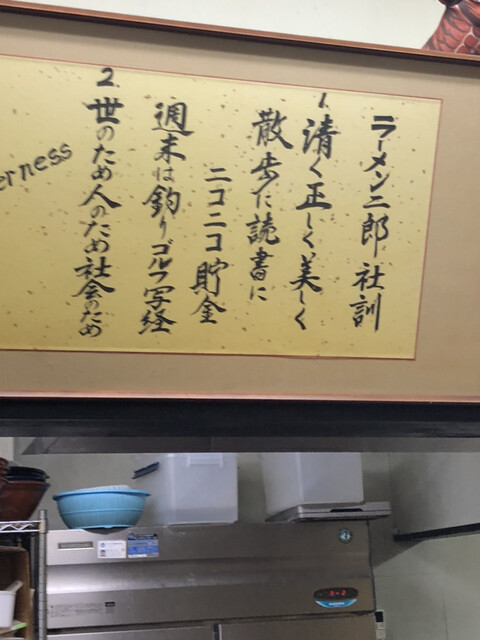 ラーメン二郎 社訓
1. 清く正しく美しく
散歩に読書に
ニコニコ貯金
週末は釣りゴルフ写経
2. 世のため人のため社会のため
erness